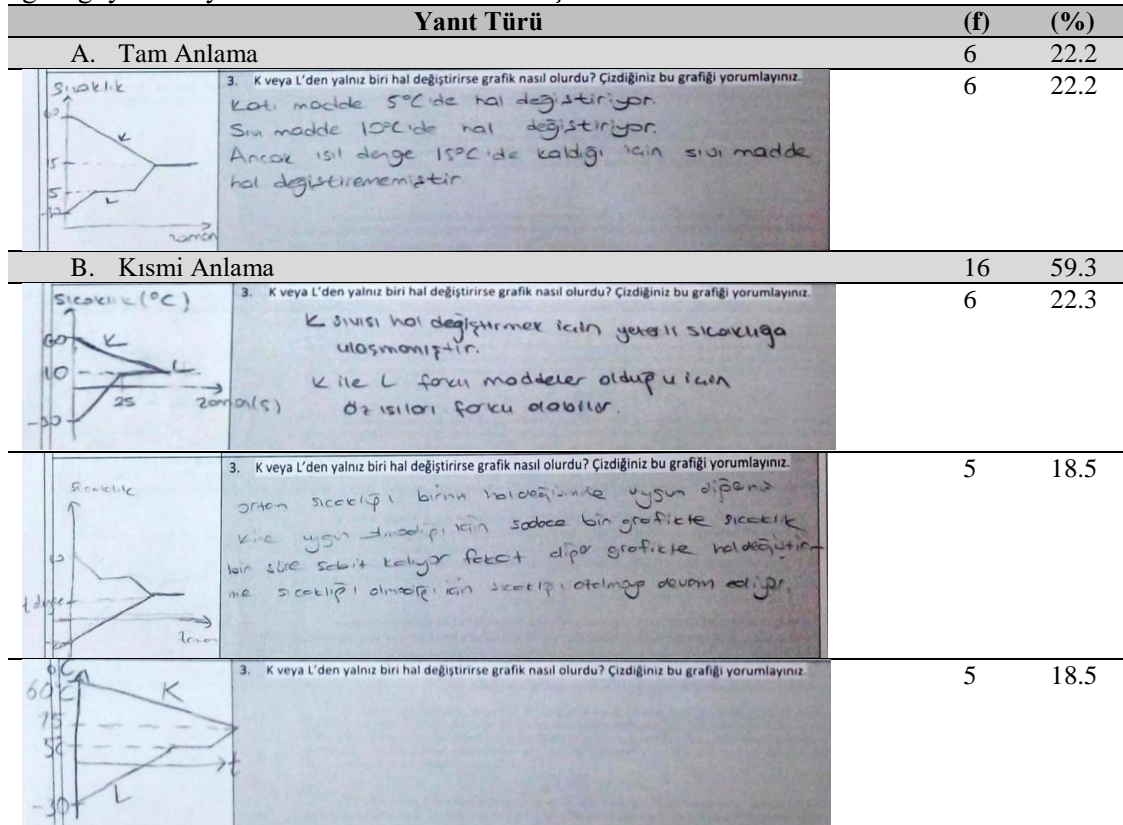 Yanıt Türü (f) (%)
A. Tam Anlama 6 22.2
6 22.2
Sıcaklık
60
15
5
-30
K
L
zaman
3. K veya L'den yalnız biri hal değiştirirse grafik nasıl olurdu? Çizdiğiniz bu grafiği yorumlayınız.
Katı madde 5°C'de hal değiştiriyor.
Sıvı madde 10°C'de hal değiştiriyor.
Ancak ısıl denge 15°C'de kaldığı için sıvı madde
hal değiştirememiştir.
B. Kısmi Anlama 16 59.3
6 22.3
Sıcaklık (°C)
60
10
-30
K
L
25
zaman(s)
3. K veya L'den yalnız biri hal değiştirirse grafik nasıl olurdu? Çizdiğiniz bu grafiği yorumlayınız.
K sıvısı hal değiştirmek için yeterli sıcaklığa
ulaşmamıştır.
K ile L farklı maddeler olduğu için
öz ısıları farklı olabilir.
5 18.5
Sıcaklık
zaman
3. K veya L'den yalnız biri hal değiştirirse grafik nasıl olurdu? Çizdiğiniz bu grafiği yorumlayınız.
ortam sıcaklığı birinin uygun
uygun olmadığı için sadece bir grafikte sıcaklık
bir süre sabit kalıyor fakat diğer grafikte hal değiştir-
me sıcaklığı olmadığı için sıcaklığı devam ediyor.
5 18.5
°C
60°C
-30
K
L
t
3. K veya L'den yalnız biri hal değiştirirse grafik nasıl olurdu? Çizdiğiniz bu grafiği yorumlayınız.